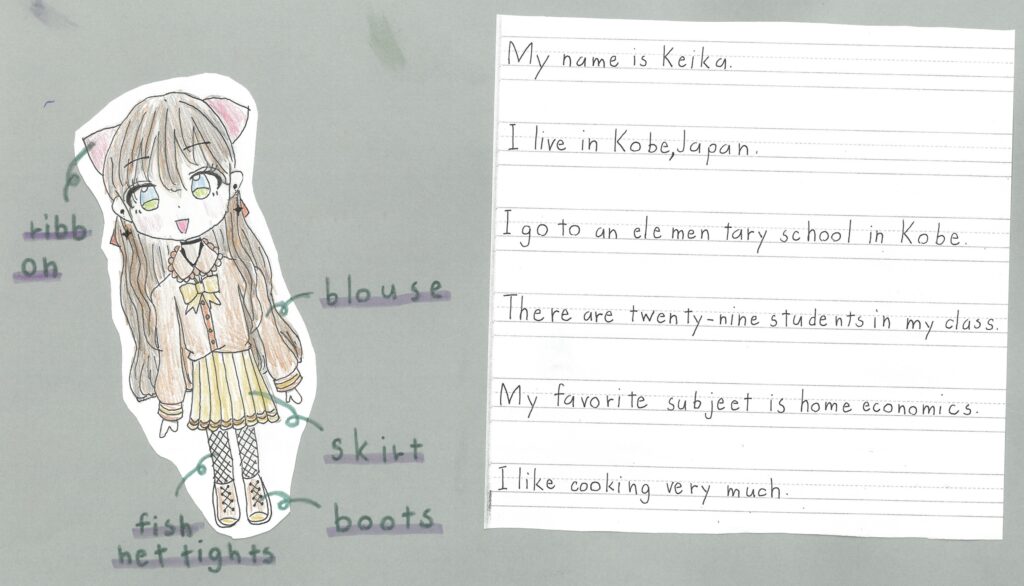 My name is Keika.
I live in Kobe, Japan.
I go to an elemen tary school in Kobe.
There are twenty-nine students in my class.
My favorite subjeet is home economics.
I like cooking very much.
ribb
on
blouse
skirt
boots
fish
net tights